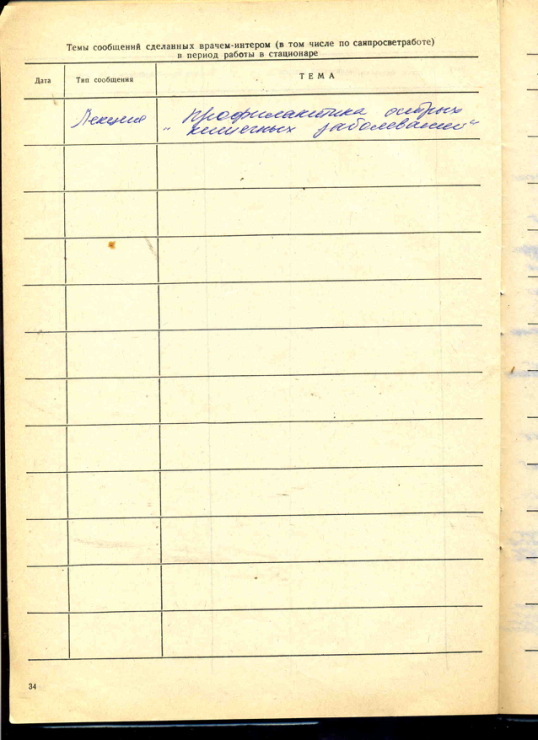 Темы сообщений сделанных врачем-интером (в том числе по саяпросветработе)
в период работы в стационаре
Дата Тип сообщения ТЕМА
Лекция „Профилактика острых
кишечных заболеваний“
34